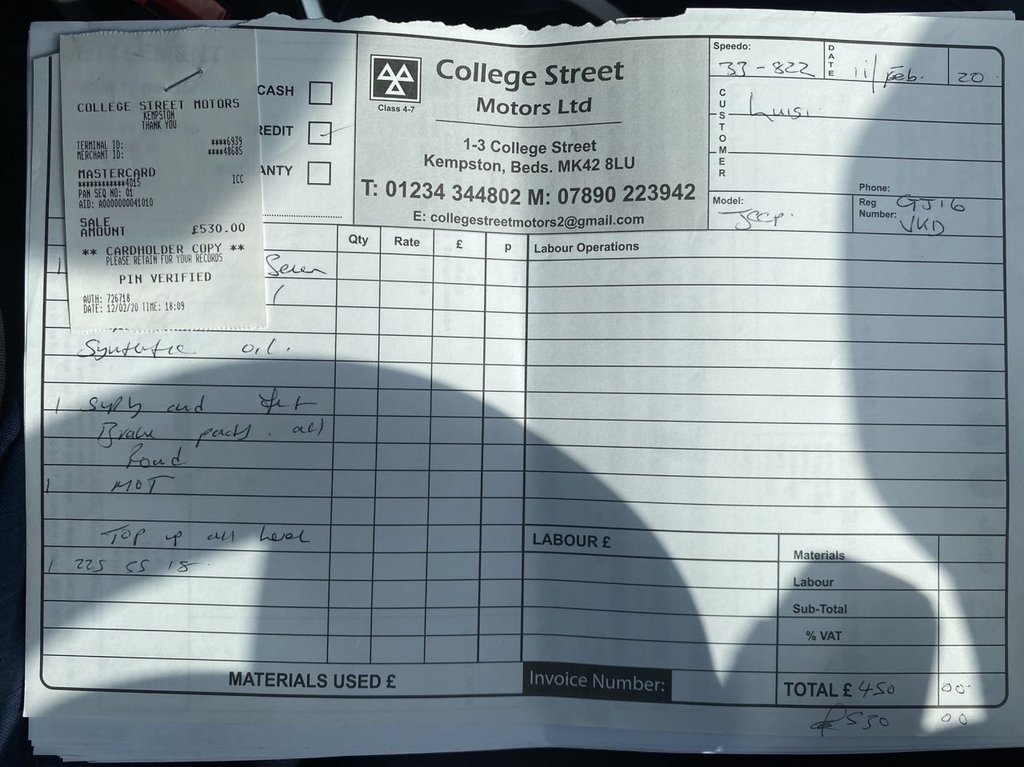 COLLEGE STREET MOTORS
KEMPSTON
THANK YOU
TERMINAL ID: ****6939
MERCHANT ID: ****48685
MASTERCARD
************4015 ICC
PAN SEQ NO: 01
AID: A0000000041010
SALE
AMOUNT £530.00
** CARDHOLDER COPY **
PLEASE RETAIN FOR YOUR RECORDS
PIN VERIFIED
AUTH: 726718
DATE: 12/02/20 TIME: 18:09
CASH
REDIT
ANTY
Class 4-7
College Street
Motors Ltd
1-3 College Street
Kempston, Beds. MK42 8LU
T: 01234 344802 M: 07890 223942
E: collegestreetmotors2@gmail.com
Speedo: 33-822
DATE 11/Feb. 20
CUSTOMER Luisi
Phone:
Model: Jeep.
Reg Number: GJ16 VKD
Qty Rate £ p Labour Operations
1
Synthetic oil.
1 Supply and fit
Brake pads. all
Round
1 MOT
Top up all level
1 225 55 18
LABOUR £
Materials
Labour
Sub-Total
% VAT
MATERIALS USED £
Invoice Number:
TOTAL £ 450 00
£530 00